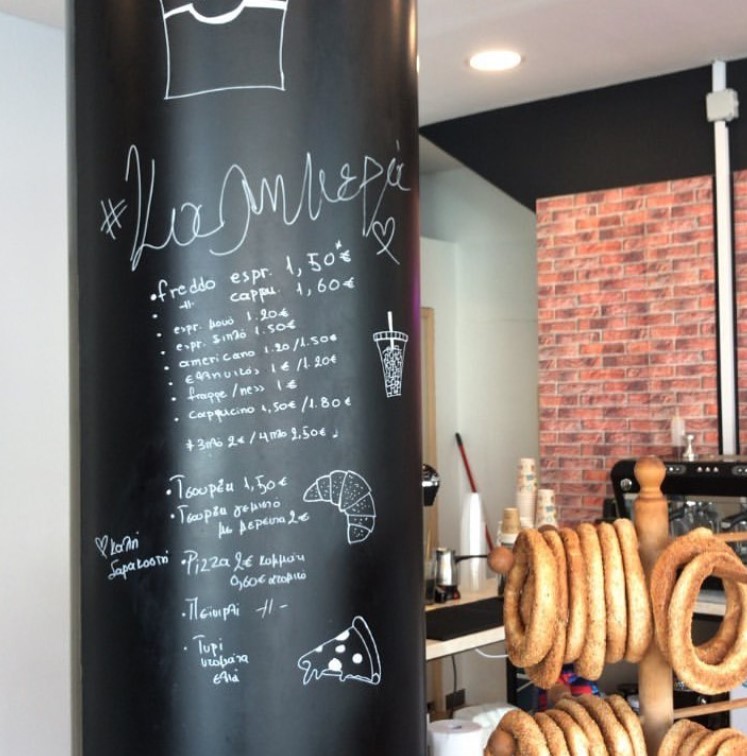 #Καλημερά
• freddo espr. 1,50*€
• -//- cappu. 1,60€
• espr. μονό 1.20€
• espr. διπλό 1.50€
• americano 1.20/1.50€
• ελληνικός 1€/1.20€
• frappe/ness 1€
• cappucino 1,50€/1.80€
*3πλό 2€/4πλό 2,50€
• Τσουρέκι 1,50€
• Τσουρέκι γεμιστό
με μερέντα 2€
♡ καλή
Σαρακοστή
• Pizza 2€ κομμάτι
0,60€ ατομικό
• Πεϊνιρλί -//-
• Τυρί
ντομάτα
ελιά